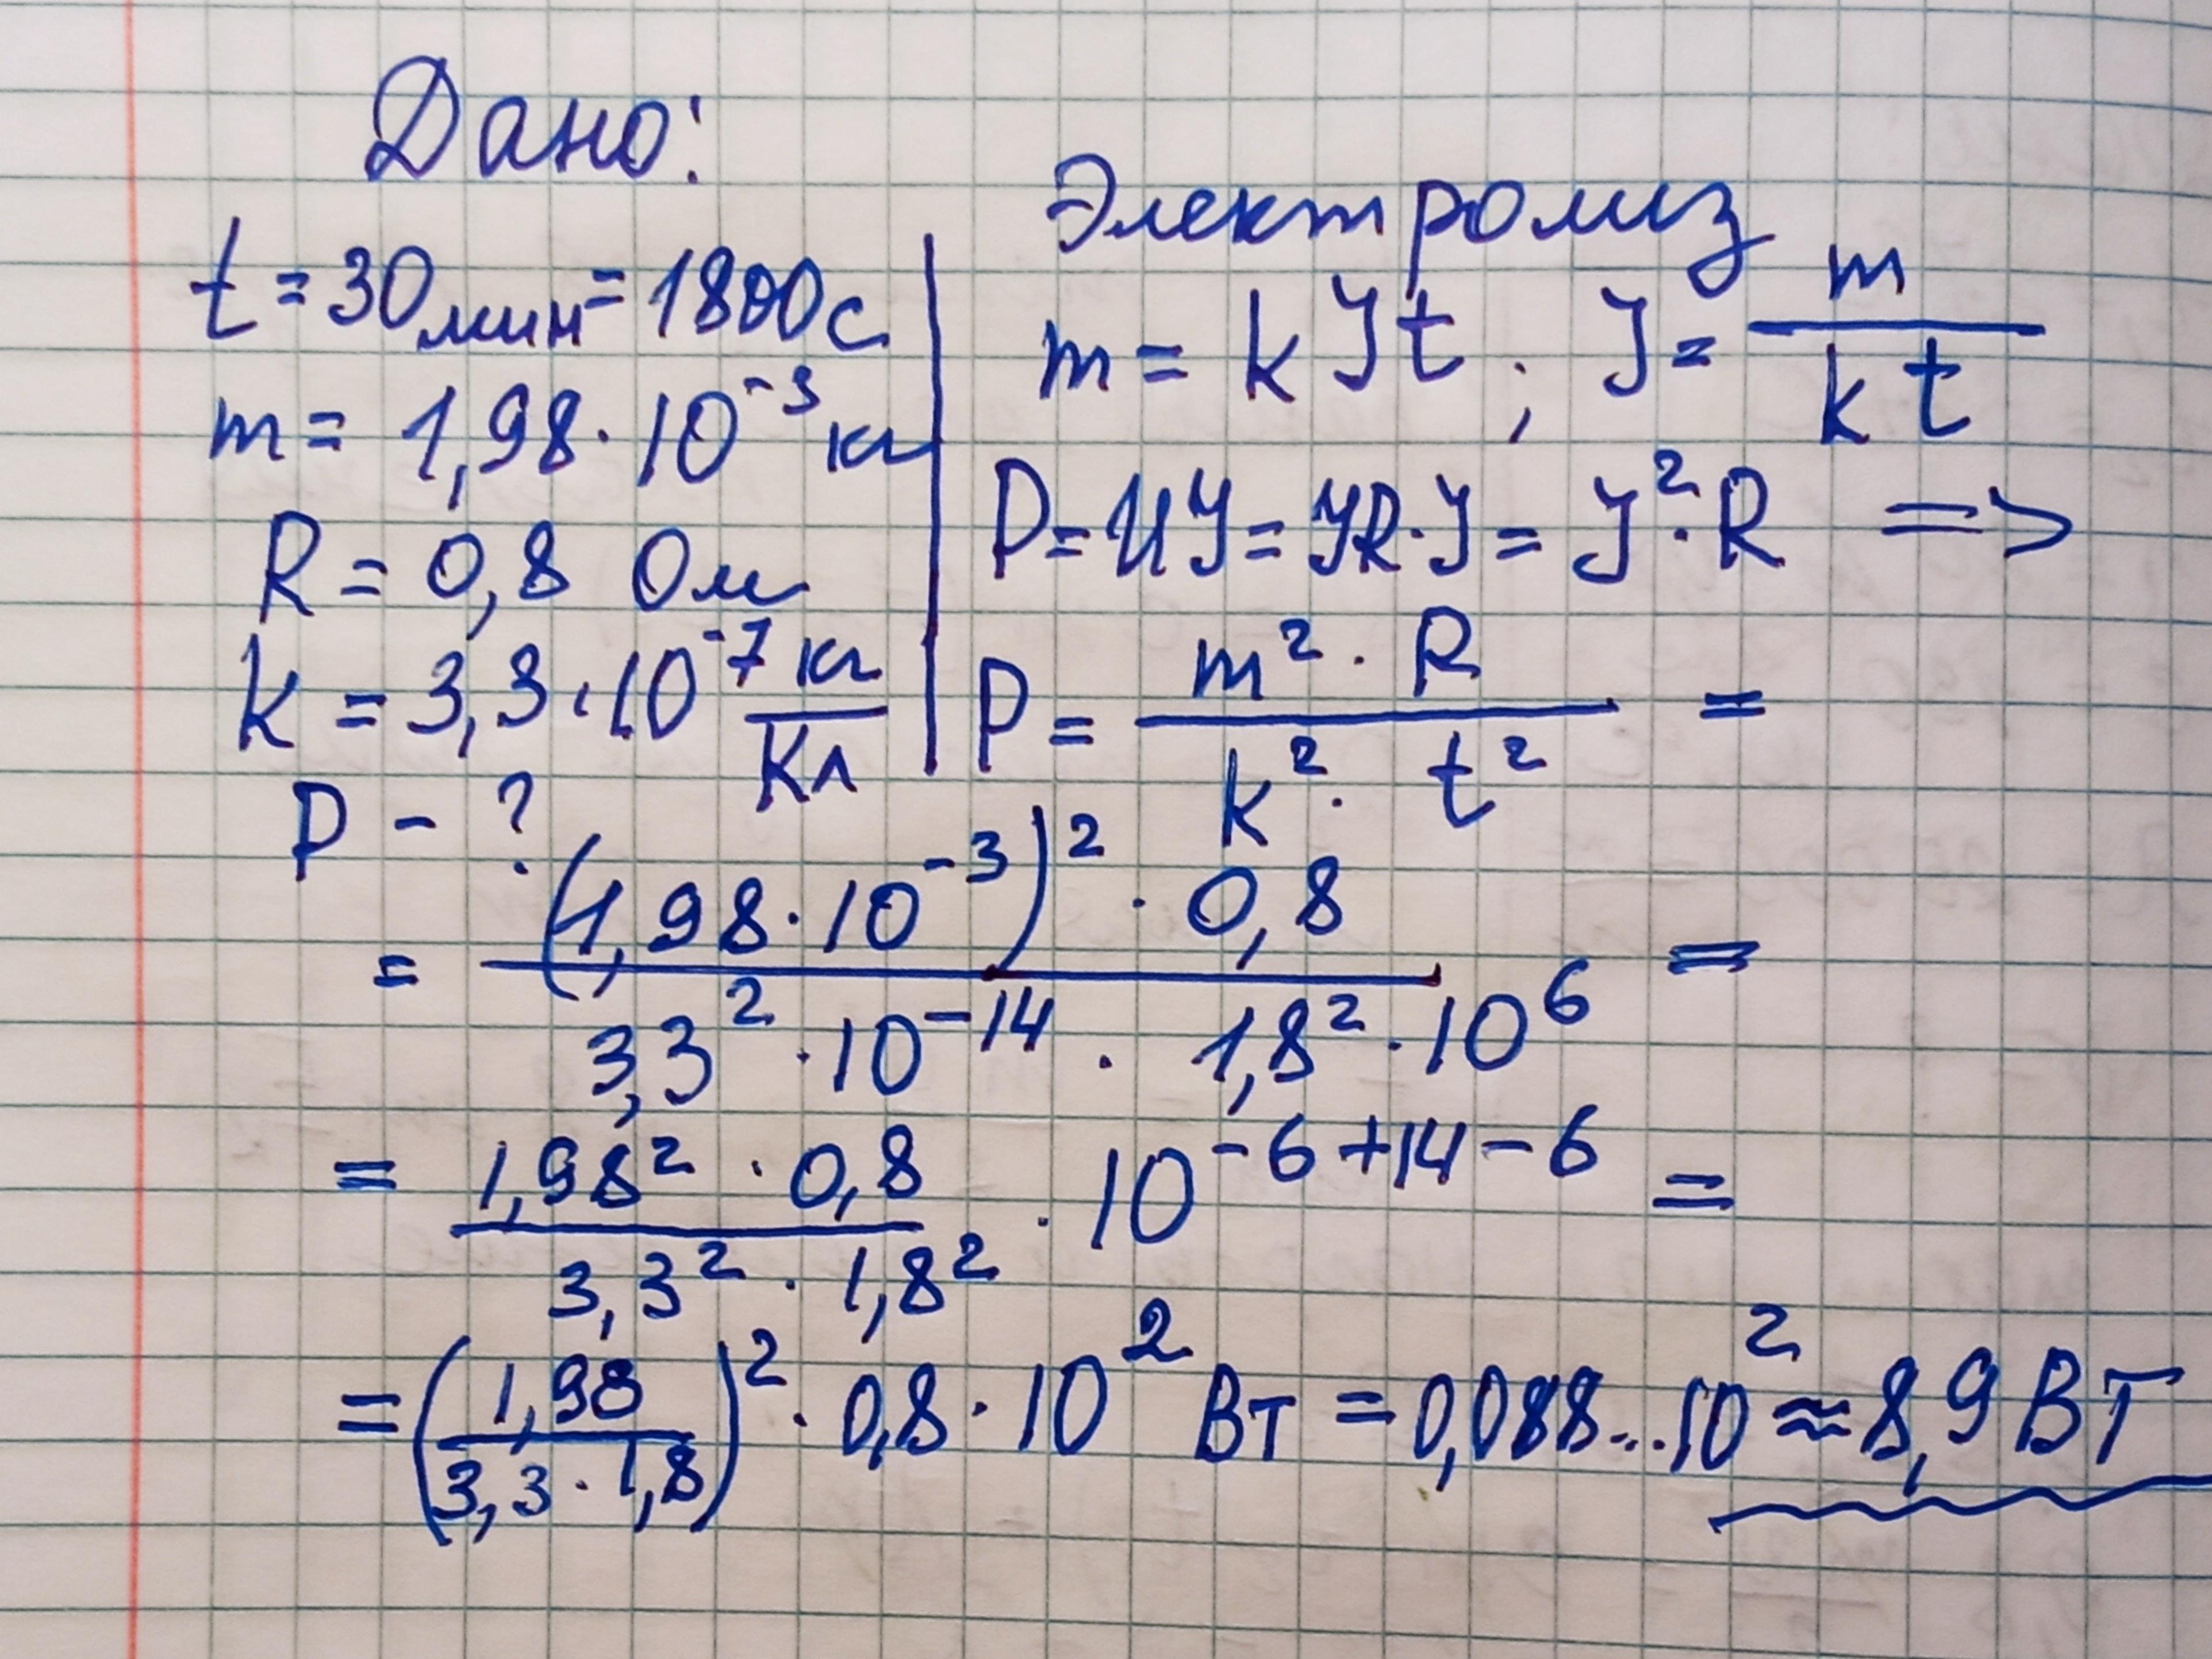 Дано:
t = 30 мин = 1800 с
m = 1,98 · 10⁻³ кг
R = 0,8 Ом
k = 3,3 · 10⁻⁷ кг/Кл
P - ?
Электролиз
m = k J t ; J = m / k t
P = UJ = JR · J = J² · R =>
P = m² · R / k² · t² =
= (1,98 · 10⁻³)² · 0,8 / 3,3² · 10⁻¹⁴ · 1,8² · 10⁶ =
= 1,98² · 0,8 / 3,3² · 1,8² · 10⁻⁶⁺¹⁴⁻⁶ =
= (1,98 / 3,3 · 1,8)² · 0,8 · 10² Вт = 0,088...10² ≈ 8,9 Вт